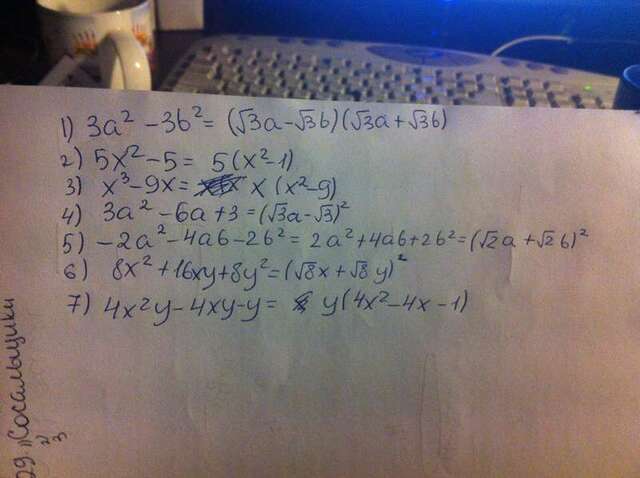 1) 3a² - 3b² = (√3a - √3b)(√3a + √3b)
2) 5x² - 5 = 5(x² - 1)
3) x³ - 9x = x(x² - 9)
4) 3a² - 6a + 3 = (√3a - √3)²
5) -2a² - 4ab - 2b² = 2a² + 4ab + 2b² = (√2a + √2b)²
6) 8x² + 16xy + 8y² = (√8x + √8y)²
7) 4x²y - 4xy - y = y(4x² - 4x - 1)
29 „Сосальщики